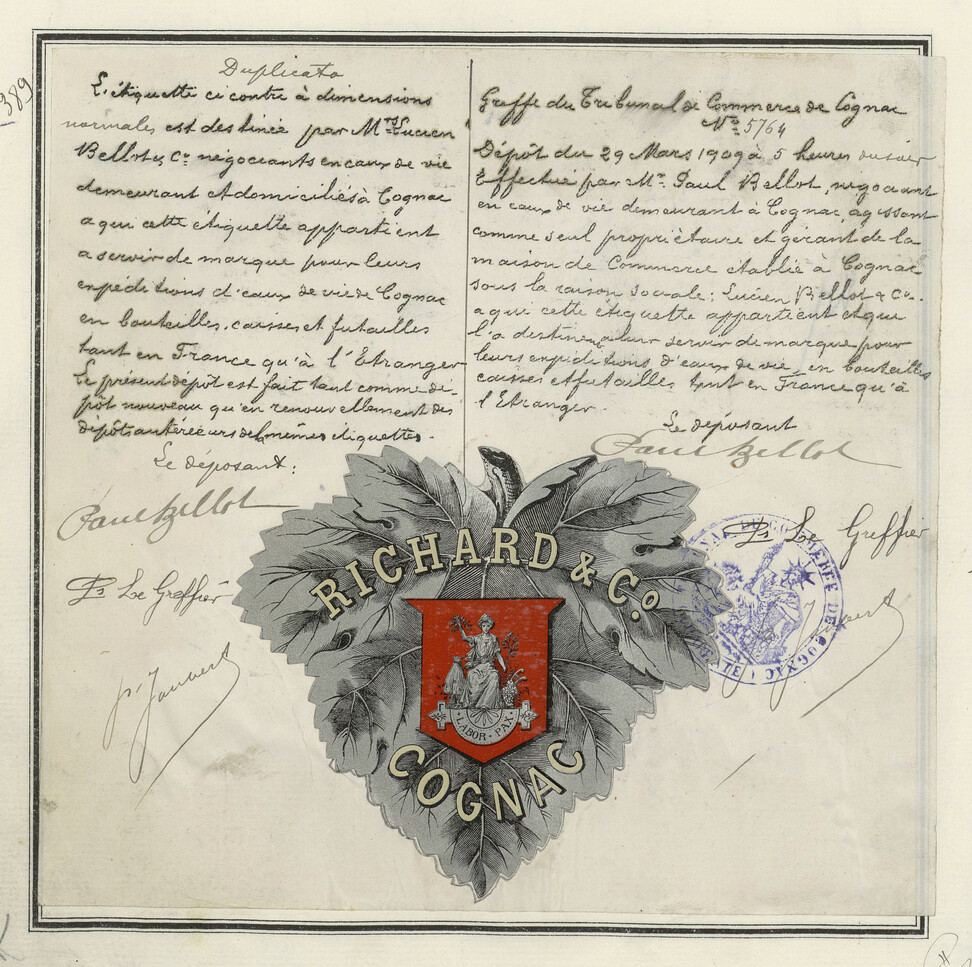 389
Duplicata
L'étiquette ci contre à dimensions
normales est destinée par Mrs Lucien
Bellot & Co négociants en eaux de vie
demeurant et domiciliés à Cognac
a qui cette étiquette appartient
a servir de marque pour leurs
expéditions d'eaux de vie de Cognac
en bouteilles, caisses et futailles
tant en France qu'à l'Etranger
Le présent dépôt est fait tant comme dé-
pôt nouveau qu'en renouvellement des
dépôts antérieurs des mêmes étiquettes.
Le déposant:
Paul Bellot
Pr Le Greffier
p. Janvert
Greffe du Tribunal de Commerce de Cognac
No 5764
Dépôt du 29 Mars 1909 à 5 heures du soir
Effectué par Mr Paul Bellot, négociant
en eaux de vie demeurant à Cognac, agissant
comme seul propriétaire et gérant de la
maison de Commerce établie à Cognac
sous la raison sociale: Lucien Bellot & Co.
a que cette étiquette appartient et qui
l'a destinée a leur servir de marque pour
leurs expéditions d'eaux de vie en bouteilles
caisses et futailles tant en France qu'à
l'Etranger.
Le déposant
Paul Bellot
Pr Le Greffier
RICHARD & Co.
LABOR · PAX
COGNAC
TRIBUNAL DU COMMERCE DE COGNAC